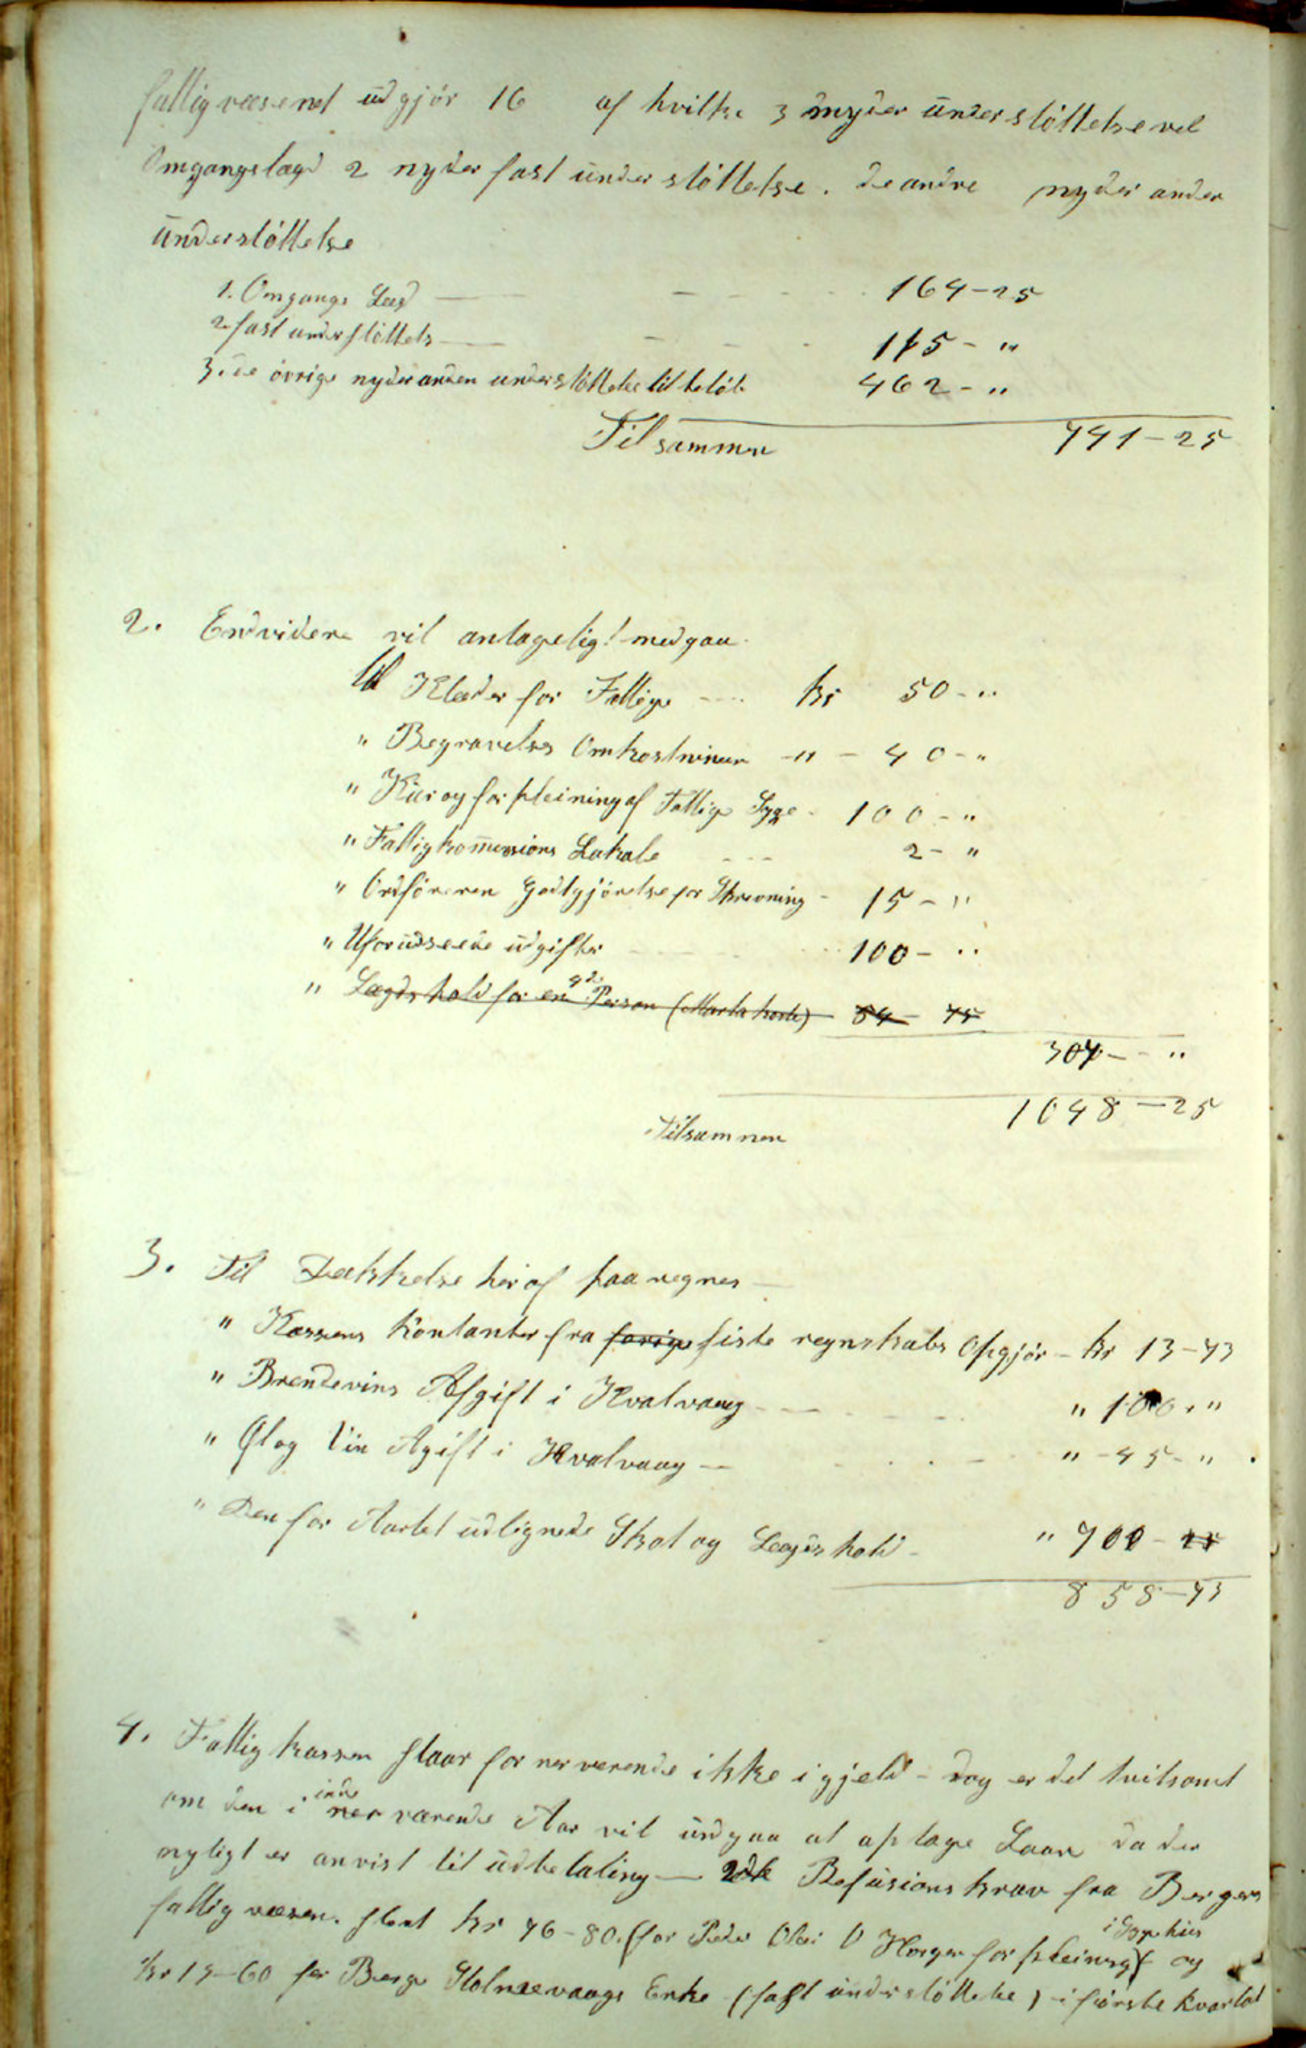 fattigvæsenet udgjør 16 af hvilke 3 nyder understøttelse ved
Omgangslægd 2 nyder fast understøttelse. de andre nyder anden
understøttelse
1. Omgangs Lægd — 164-25
2. fast understøttels — 115 - "
3. de øvrige nyder anden understøttelse til beløb 462 - "
Tilsammen 741-25
2. Endvidere vil antageligt medgaa
til Klæder for Fattige kr 50 - "
" Begravelses Omkostninger - " - 40 - "
" Kur og forpleining af Fattige Syge - 100 - "
" Fattigkommissions Lokale 2 - "
" Ordføreren Godtgjørelse for Skrivning - 15 - "
" Uforudseede udgifter 100 - "
" Lægdshold for en Person ( 84 - 75
307 - "
1048-25
Tilsammen
3. Til Dækkelse heraf paaregnes —
" Kassens Kontanter fra forige siste regnskabs Opgjør - kr 13-73
" Brendevins Afgift i Kvalvaag " 100 - "
" Øl og Vin Agift i Kvalvaag — " - 45 - "
" Den for Aaret udlignede Skat og Lægdshold - " 700 - 25
858-73
4. Fattigkassen staar for nerværende ikke i gjeld - dog er det tvilsomt
om den i inde nerværende Aar vil undgaa at optage Laan da der
nyligt er anvist til udbetaling — Refusions krav fra Bergens
fattigvæsen. stort kr 76-80. (for Peder Olai forpleining i Sygehus) og
kr 15-60 for Berge Enke (fast understøttelse) - i første kvartal